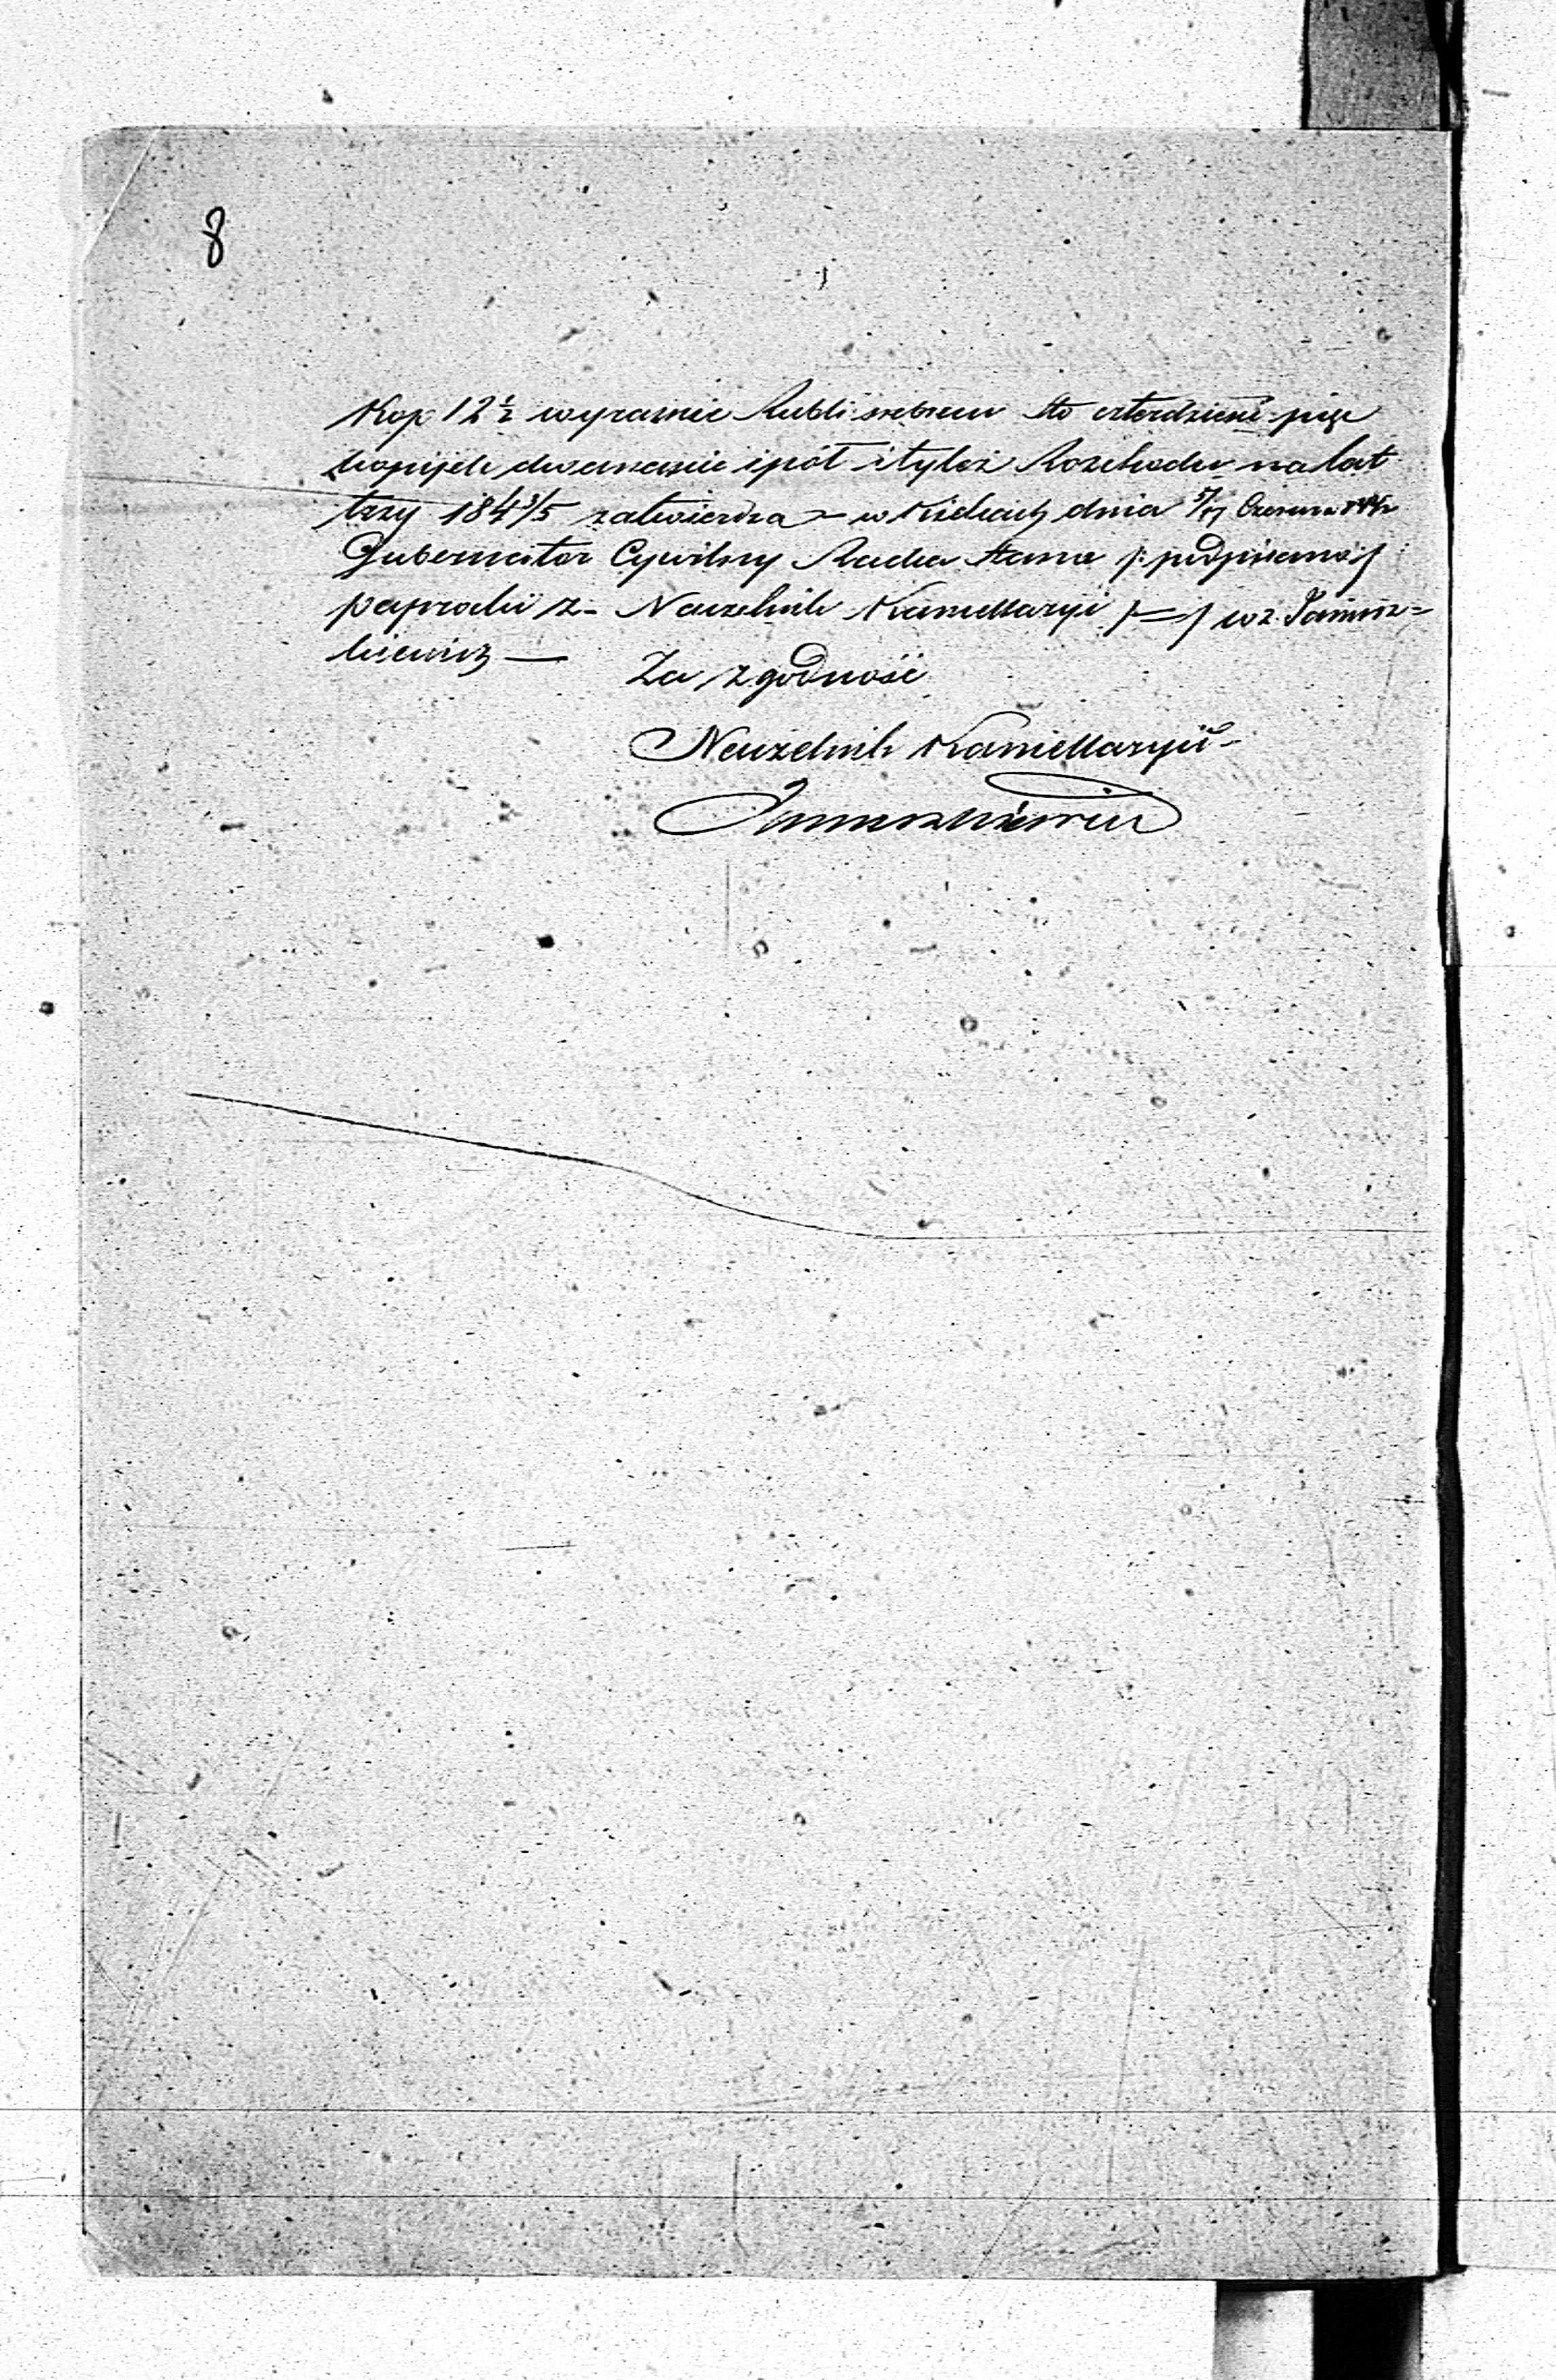 8
Kop 12 ½ wyraznie Rubli srebrem sto czterdzieści pięć
kopijek dwanaście i pół i tyleż Rozchodu na lat
trzy 184 3/5 zatwierdza – w Kielcach dnia 5/17 Czerwca
Gubernator Cywilny Radca Stanu /: podpisano :/
Naczelnik Kancellaryi /–/ wz. Janusz=
kiewicz —
Za zgodność
Naczelnik Kancellaryi
Januszkiewicz